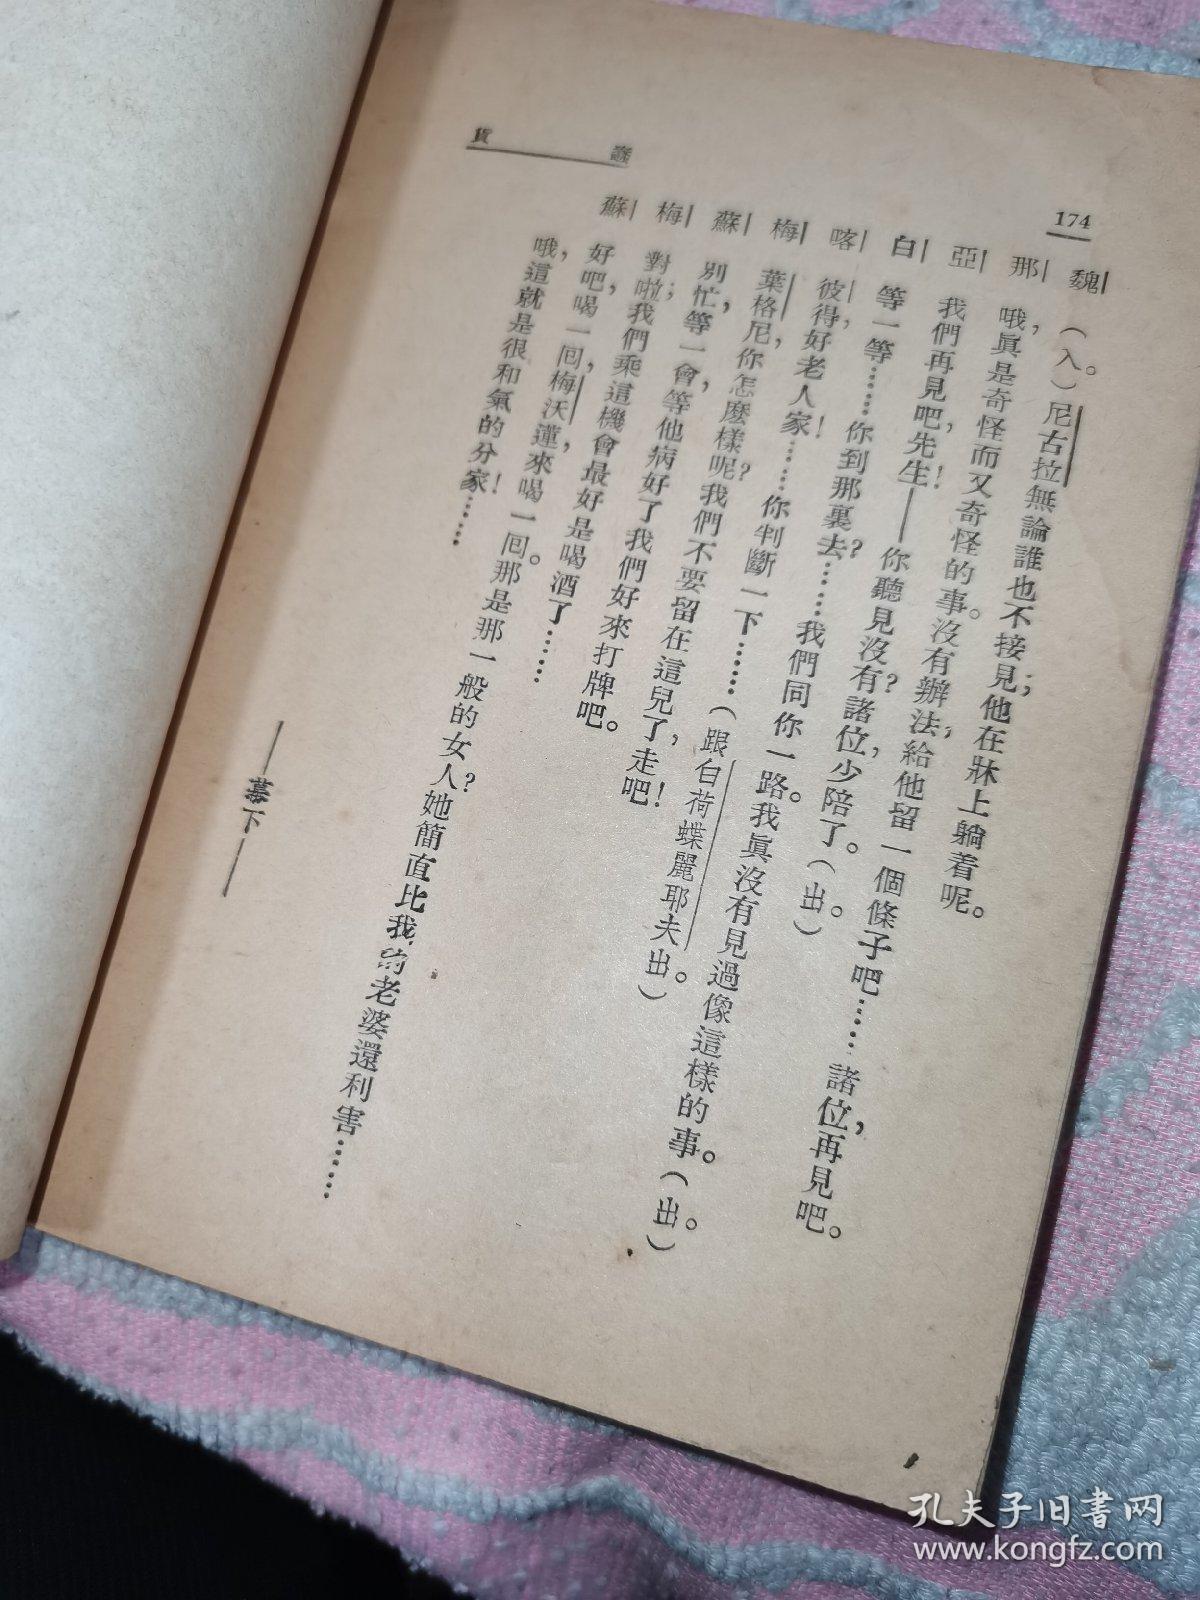 174
蠢貨
魏| (入。)尼古拉無論誰也不接見;他在牀上躺着呢。
那| 哦,眞是奇怪而又奇怪的事。沒有辦法,給他留一個條子吧……諸位,再見吧。
亞| 我們再見吧,先生!——你聽見沒有?諸位,少陪了。(出。)
白| 等一等……你到那裏去?……我們同你一路。我眞沒有見過像這樣的事。(出。)
喀| 彼得,好老人家!……你判斷一下……(跟白荷蝶麗耶夫出。)
梅| 葉格尼,你怎麼樣呢?我們不要留在這兒了,走吧!
蘇| 別忙,等一會,等他病好了我們好來打牌吧。
梅| 對啦;我們乘這機會最好是喝酒了……
蘇| 好吧,喝一囘,梅沃蓮,來喝一囘。那是那一般的女人?她簡直比我的老婆還利害……
哦,這就是很和氣的分家!……
——幕下——
孔夫子旧书网
www.kongfz.com